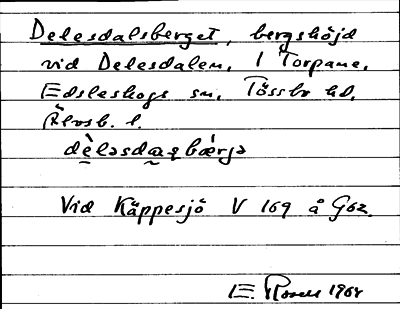 Delesdalsberget, bergshöjd
vid Delesdalen. I Torpane.
Edsleskogs sn. Tössbo hd.
Älvsb. l.
dèləsdaʂbǽrjə
Vid Käppesjö V 169 å G62.
E. Rosell 1964